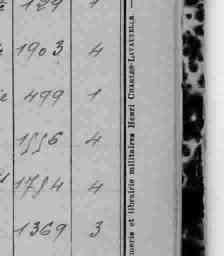 1903 4
499 1
1556 4
1754 4
1369 3
merie et librairie militaires Henri CHARLES-LAVAUZELLE. —